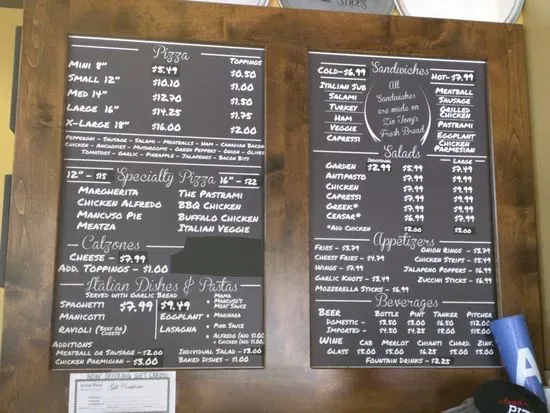 Pizza
TOPPINGS
MINI 8" $5.49 $0.50
SMALL 12" $10.10 $1.00
MED 14" $12.70 $1.50
LARGE 16" $14.25 $1.75
X-LARGE 18" $16.00 $2.00
PEPPERONI - SAUSAGE - SALAMI - MEATBALLS - HAM - CANADIAN BACON
CHICKEN - ANCHOVIES - MUSHROOMS - GREEN PEPPERS - ONION - OLIVES
TOMATOES - GARLIC - PINEAPPLE - JALAPENOS - BACON BITS
12" - $15 Specialty Pizza 16" - $22
MARGHERITA THE PASTRAMI
CHICKEN ALFREDO BBQ CHICKEN
MANCUSO PIE BUFFALO CHICKEN
MEATZA ITALIAN VEGGIE
Calzones
CHEESE - $7.99
ADD. TOPPINGS - $1.00
Italian Dishes & Pastas
SERVED WITH GARLIC BREAD
SPAGHETTI $7.99 $9.49
MANICOTTI EGGPLANT
RAVIOLI (BEEF OR CHEESE) LASAGNA
• MAMA MANCUSO'S MEAT SAUCE
• MARINARA
• PINK SAUCE
• ALFREDO (ADD $1.00)
+ CHICKEN (ADD $3.00)
ADDITIONS
MEATBALL OR SAUSAGE - $2.00 INDIVIDUAL SALAD - $3.00
CHICKEN PARMIGIAN - $3.00 BAKED DISHES - $1.00
NOW OFFERING GIFT CARDS!
Gift Certificate
Sandwiches
COLD - $6.99 HOT - $7.99
ITALIAN SUB
SALAMI
TURKEY
HAM
VEGGIE
CAPRESSI
All
Sandwiches
are made on
Zio Tony's
Fresh Bread
MEATBALL
SAUSAGE
GRILLED CHICKEN
PASTRAMI
EGGPLANT
CHICKEN PARMESAN
Salads
INDIVIDUAL LARGE
GARDEN $2.99 $5.99 $7.49
ANTIPASTO $7.99 $9.99
CHICKEN $7.99 $9.99
CAPRESSI $7.99 $9.99
GREEK* $6.99 $7.99
CEASAR* $6.99 $7.99
*ADD CHICKEN $2.00 $3.00
Appetizers
FRIES - $3.79 ONION RINGS - $3.79
CHEESE FRIES - $4.79 CHICKEN STRIPS - $5.49
WINGS - $7.99 JALAPENO POPPERS - $6.99
GARLIC KNOTS - $3.49 ZUCCINI STICKS - $6.99
MOZZERELLA STICKS - $6.99
Beverages
BEER BOTTLE PINT TANKER PITCHER
DOMESTIC - $3.50 $3.00 $6.50 $12.00
IMPORTED - $4.50 $4.25 $8.00 $15.00
WINE CAB MERLOT CHIANTI CHARD. ZINF.
GLASS $5.00 $5.00 $6.25 $5.00 $5.00
FOUNTAIN DRINKS - $2.25
A